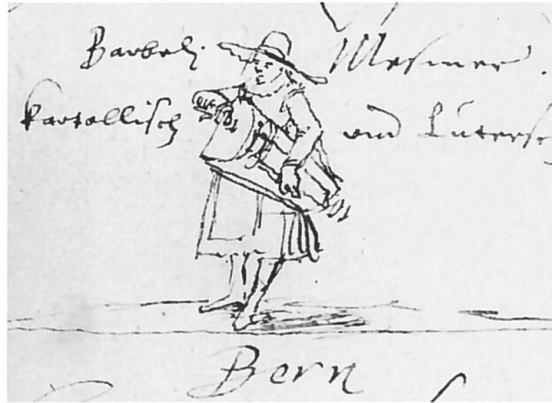 Barbeli Mesmer.
kartollisch und Lutersch
Bern